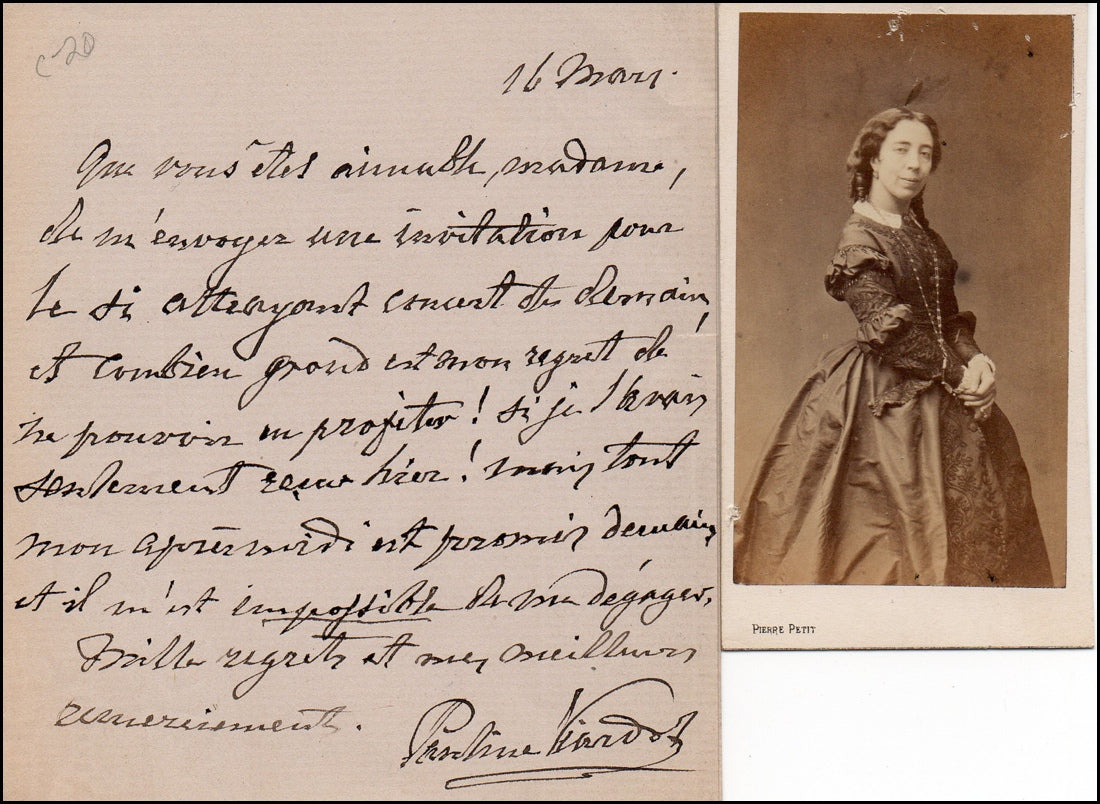 c20
16 Mars.
Que vous êtes aimable, madame,
de m'envoyer une invitation pour
le si attrayant concert de demain,
et combien grand est mon regret de
ne pouvoir en profiter ! si je l'avais
seulement reçue hier ! mais tout
mon après midi est promis demain
et il m'est impossible de me dégager.
Mille regrets et mes meilleurs
remerciements.
Pauline Viardot
PIERRE PETIT